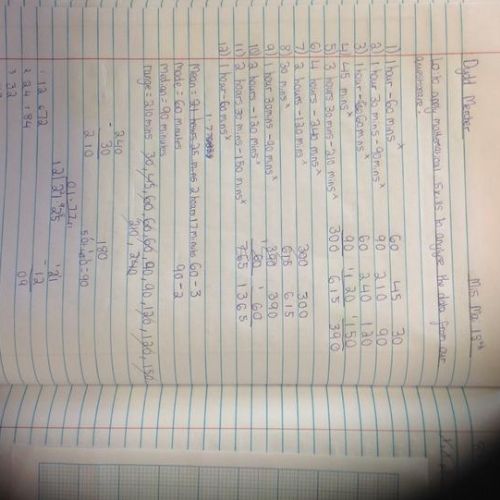 Dydd Mercher
Mis Mai 13eg
Lo: to apply mathematical skills to analyse the data from our
questionnaire!
1) 1 hour - 60 mins x
2) 1 hour 30 mins - 90 mins x
3) 1 hour - 60 mins x
4) 45 mins x
5) 3 hours 30 mins - 210 mins x
6) 4 hours - 240 mins x
7) 2 hours - 120 mins x
8) 30 mins x
9) 1 hour 30 mins - 90 mins x
10) 2 hours - 120 mins x
11) 2 hours 30 mins - 150 mins x
12) 1 hour 60 mins x
60 45 30
90 210 90
60 240 120
90 120 150
300 615 390
300 300
615 615
390 390
60 60
765 1365
Mean = 21 hours 25 mins 2 hour 17 minutes
Mode = 60 minutes
60 - 3
90 - 2
median = 90 minutes
range = 210 mins
30, 45, 60, 60, 60, 90, 90, 120, 120, 150
210, 240
240
- 30
210
180
= 90
12
21
- 12
09